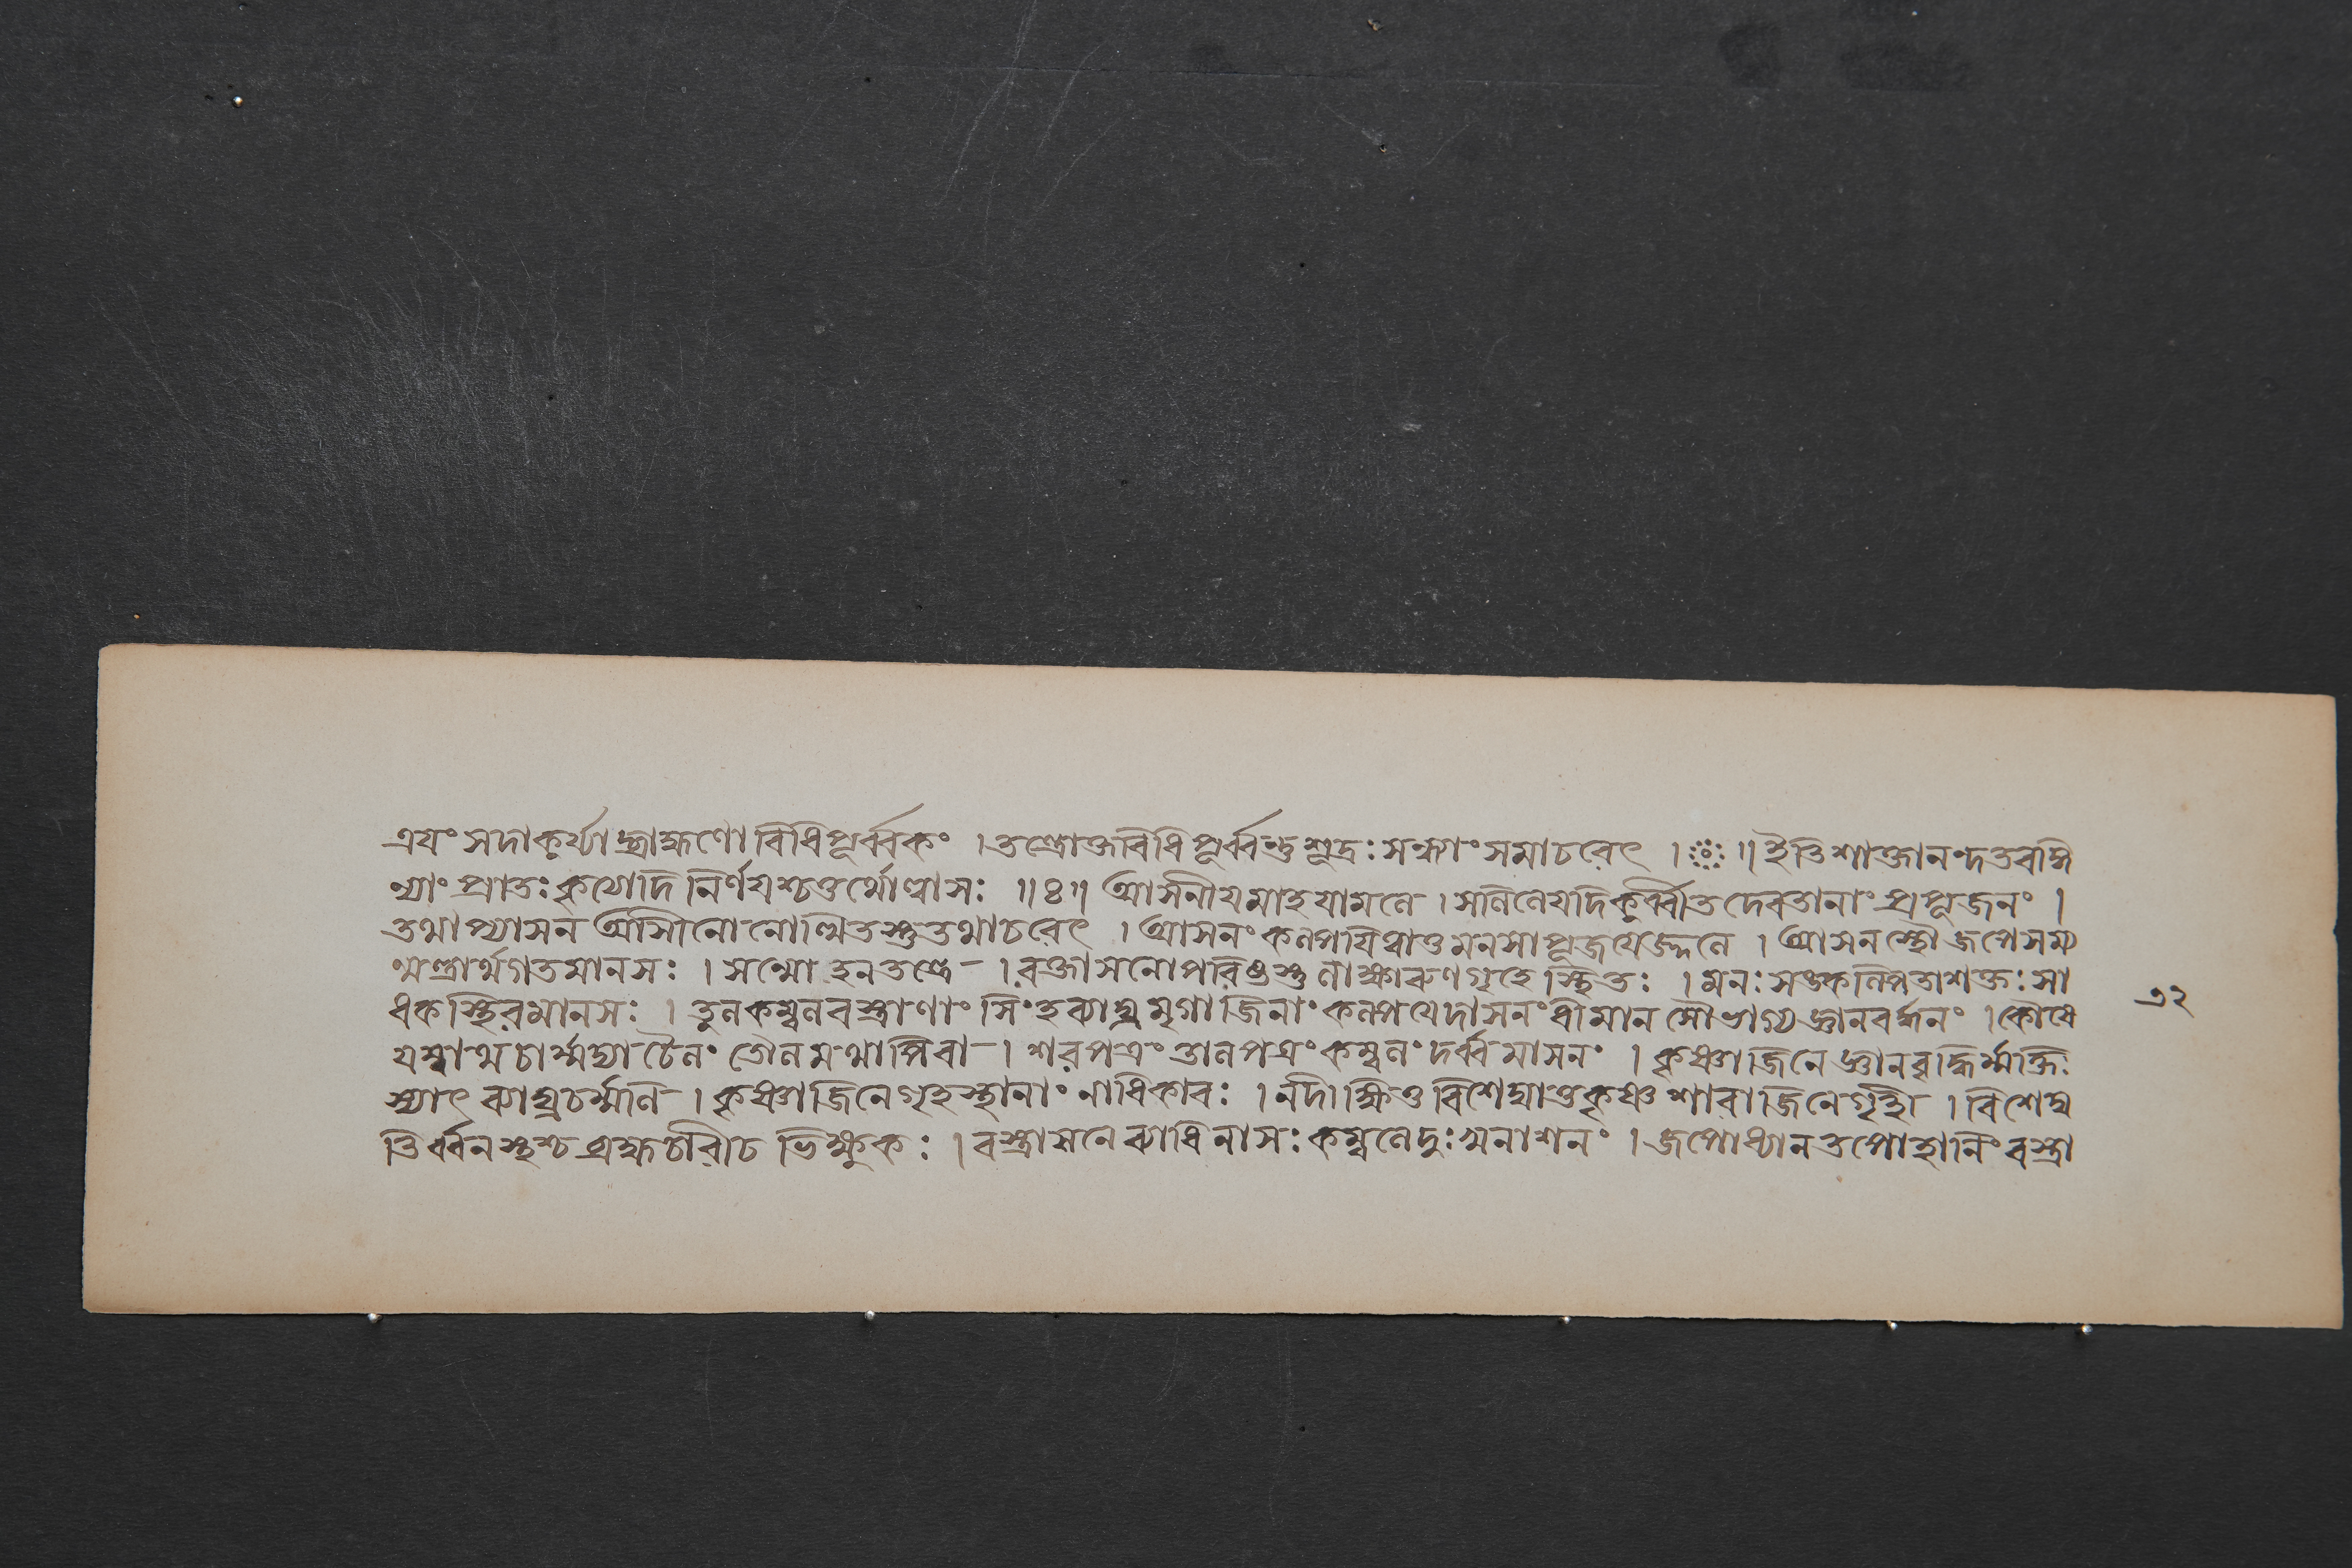 এযং সদাকুর্য্যাদ্ব্রাহ্মণো বিধিপূর্ব্বকং । তন্ত্রোক্তবিধিপূর্ব্বন্তু শূদ্রঃ সন্ধ্যাং সমাচরেৎ । ঃ ॥ ইতি শাক্তানন্দতরঙ্গি
ণ্যাং প্রাতঃকৃত্যাদি নির্ণযশ্চতুর্থোল্লাসঃ ॥ ৪ ॥ আসনীযমাহ যামলে । সলিলেযদিকুর্ব্বীত দেবতানাং প্রপূজনং ।
তথাপ্যাসন আসীনো নোত্থিতস্তু তথাচরেৎ । আসনং কল্পযিত্বাতু মনসাপূজযেজ্জলে । আসনস্থো জপেৎসম্য
ঙ্মন্ত্রার্থগতমানসঃ । সম্মোহনতন্ত্রে । রক্তাসনোপরিষ্ঠস্তু লাক্ষারুণগৃহে স্থিতঃ । মনঃসঙ্কল্পিতাশক্তঃ সা
ধক স্থিরমানসঃ । তুলকম্বলবস্ত্রাণাং সিংহব্যাঘ্রমৃগাজিনাং কল্পযেদাসনং ধীমান সৌভাগ্যজ্ঞানবর্দ্ধনং । কৌষে
যম্বাথ চার্ম্মম্বা চৈলং তৌলমথাপিবা । শরপত্রং তালপত্রং কম্বলং দর্ব্বমাসনং । কৃষ্ণাজিনে জ্ঞানবৃদ্ধির্ম্মুক্তিঃ
স্যাৎ ব্যাঘ্রচর্ম্মণি । কৃষ্ণাজিনে গৃহস্থানাং নাধিকারঃ । নদীক্ষিতো বিশেদ্যাতু কৃষ্ণশারাজিনে গৃহী । বিশেদ্য
তির্ব্বনস্থশ্চ ব্রহ্মচারীচ ভিক্ষুকঃ । বস্ত্রাসনে ব্যাধিনাসঃ কম্বলেদুঃখনাশনং । জপোধ্যানতপোহানিং বস্ত্রা
৩২